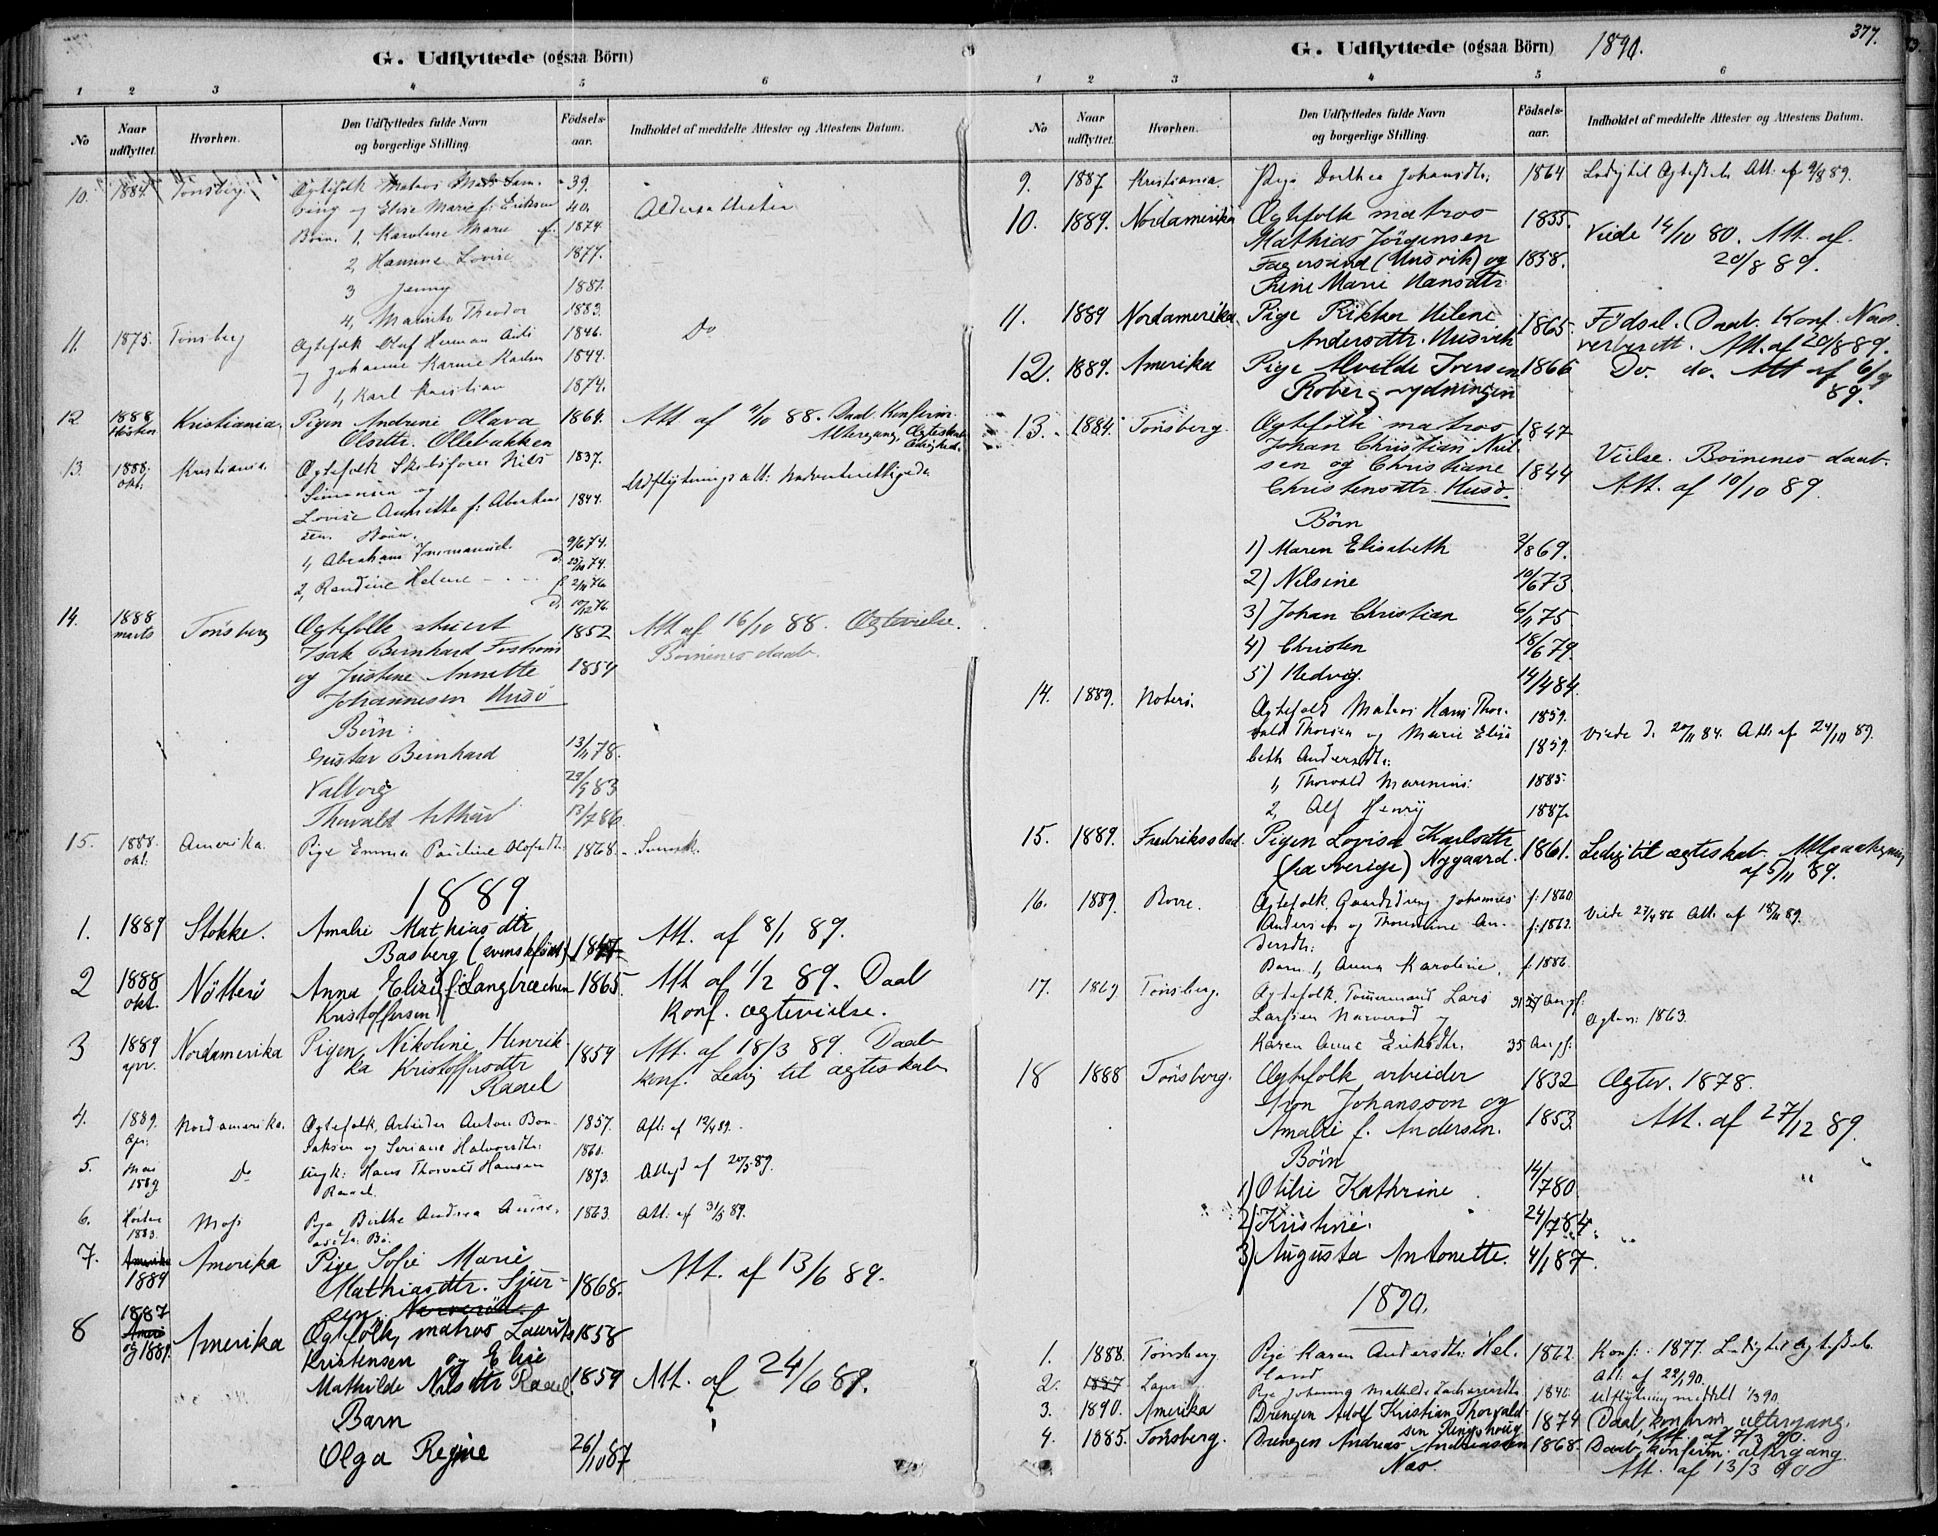 G. Udflyttede (ogsaa Börn)
1 2 3 4 5 6
No
Naar udflyttet.
Hvorhen.
Den Udflyttedes fulde Navn og borgerlige Stilling.
Födsels-aar.
Indholdet af meddelte Attester og Attestens Datum.
10. 1884 Tönsberg Ægtefolk Matros 39.
og Elise Marie f. Eriksen 40.
Börn. 1, Karoline Marie 1874.
2, Hanine Lovise 1877.
3 Jenny 1881.
4, Theodor 1883.
11. 1875. Tönsberg Ægtefolk Olaf Herman 1846. Do
og Johanne Karine Karlsen 1844.
1, Karl Kristian 1874.
12 1888 Kristiania. Pigen Andrine Olava 1869. Att af 88. Daab Konfirm.
Olsdtr. Ollebakken Altergang, Ægteskab
13. 1888. okt. Kristiania. Ægtefolk Nils 1837.
Simonsen og Udflytningsatt:
Lovise f: 1844.
Börn.
1, Abraham 9/6 74.
2, Helene
14. 1888 marts Tönsberg Ægtefolk 1852 Att af 16/10 88. Ægtevielse.
Isak Bernhard Börnenes daab.
og Justine Annette 1854
Johannesen Husö
Börn:
Gustav Bernhard 13/11 78.
Valborg 29/9 83
Thorvald Arthur
15. 1888. okt. Amerika. Pige Emma Pauline Olofsdtr. 1868. Svensk.
1889.
1. 1889 Stokke. Amalie Mathiasdtr Att. af 8/1 89.
Basberg (svenskfödt)
2 1888 okt. Nötterö Anna Elise f. Langbrækken 1865. Att af 1/2 89. Daab
Kristoffersen konf. ægtevielse.
3 1889 Nordamerika Pigen Nikoline Henrik- 1859 Att. af 18/3 89. Daab
ka Kristoffersdtr konf. Ledig til ægteskab
Raael
4. 1889. Apr. Nordamerika. Ægtefolk, Arbeider Anton Bon- 1857. Att. af 89.
saksen og Seriane Halvorsdtr. 1860.
5. Mai 1889. Do Ungk: Hans Thorvald Hansen 1873. af 20/5 89.
Raael.
6. Moss Pige Birthe Andrea 1863. Att. af 31/5 89.
7. 1889 Amerika Pige Sofie Marie Att. af 13/6 89.
Mathiasdtr. 1868.
8 1887 og 1889. Amerika Ægtefolk, matros Laurits 1858
Kristensen og Elise
Mathilde Nilsdtr Raael. 1859 Att. af 24/6 89.
Barn
Olga Regine 26/10 87
G. Udflyttede (ogsaa Börn) 1890. 377.
1 2 3 4 5 6
No
Naar udflyttet.
Hvorhen.
Den Udflyttedes fulde Navn og borgerlige Stilling.
Födsels-aar.
Indholdet af meddelte Attester og Attestens Datum.
9. 1887 Kristiania. Pige Dorthea Johansdtr. 1864 Ledig til Ægteskab. Att. af 9/8 89.
10. 1889. Nordamerika Ægtefolk matros 1855. Viede 14/10 80. Att. af
Mathias Jörgensen 20/8 89.
Fagersand (Husvik) og 1858.
Trine Marie Hansdtr
11. 1889 Nordamerika. Pige Rikka Helene 1865. Födsel. Daab. Konf.
Andersdtr. Husvik Att. af 20/8 89.
12. 1889. Amerika Pige Alvilde Iversen 1866 Do. do. Att af 6/9
Robergrydningen 89.
13. 1884. Tönsberg. Ægtefolk matros 1847
Johan Christian Niel- Vielse. Börnenes daab.
sen og Christiane 1844 Att. af 10/10 89.
Christensdtr. Husö.
Börn
1) Maren Elisabeth 2/8 69.
2) Nilsine 10/6 73.
3) Johan Christian 6/11 75.
4) Christen 18/6 79.
5) Hedvig. 14/4 84.
14. 1889. Nöterö. Ægtefolk Matros Hans Thor- 1859.
vald Thorsen og Marie Elisa- 1859. Viede d. 84. Att. af 24/10 89.
beth Andersdtr.
1, Thorvald Marinius. 1885.
2, Alf Henry 1887.
15. 1889. Fredriksstad. Pigen Lovisa Karlsdtr 1861. Ledig til ægteskab.
(fra Sverige) Nygaard. af 5/11 89.
16. 1889. Borre. Ægtefolk Gaardsdreng Johannes f. 1860
Andersen og Thorine An- f. 1862. Viede 27/4 86 Att. af 18/11 89.
dersdtr.
Barn 1, Anna Karoline. f. 1886.
17. Tönsberg. Ægtefolk. Tömmermand Lars
Larssen Narverød og Ægtev: 1863.
Karen Anne Eriksdtr. 35 Aar
18 1888 Tönsberg. Ægtefolk arbeider 1832 Ægtev. 1878.
Aron Johansson og
Amalie f. Andersen. 1853. Att. af 27/12 89.
Börn
1) Otilie Kathrine 14/7 80.
2) Kristine. 24/7 84.
3) Augusta Antonette. 4/1 87.
1890.
1. 1888. Tönsberg Pige Karen Andersdtr. Hel- 1862. Konf: 1877. Ledig til Ægteskab.
land Att. af 22/1 90.
2. 1887 Pige Johanne Mathilde 1840. Udflytning meddelt 90
3. 1890. Amerika Drengen Adolf Kristian Thorvald- 1874 Daab, konfirm altergang.
sen Ringshoug. Att. af 7/3 90.
4. 1885. Tönsberg. Drengen Andreas Andreassen 1868. Daab konfirm. altergang
Næs. Att. af 13/3 90